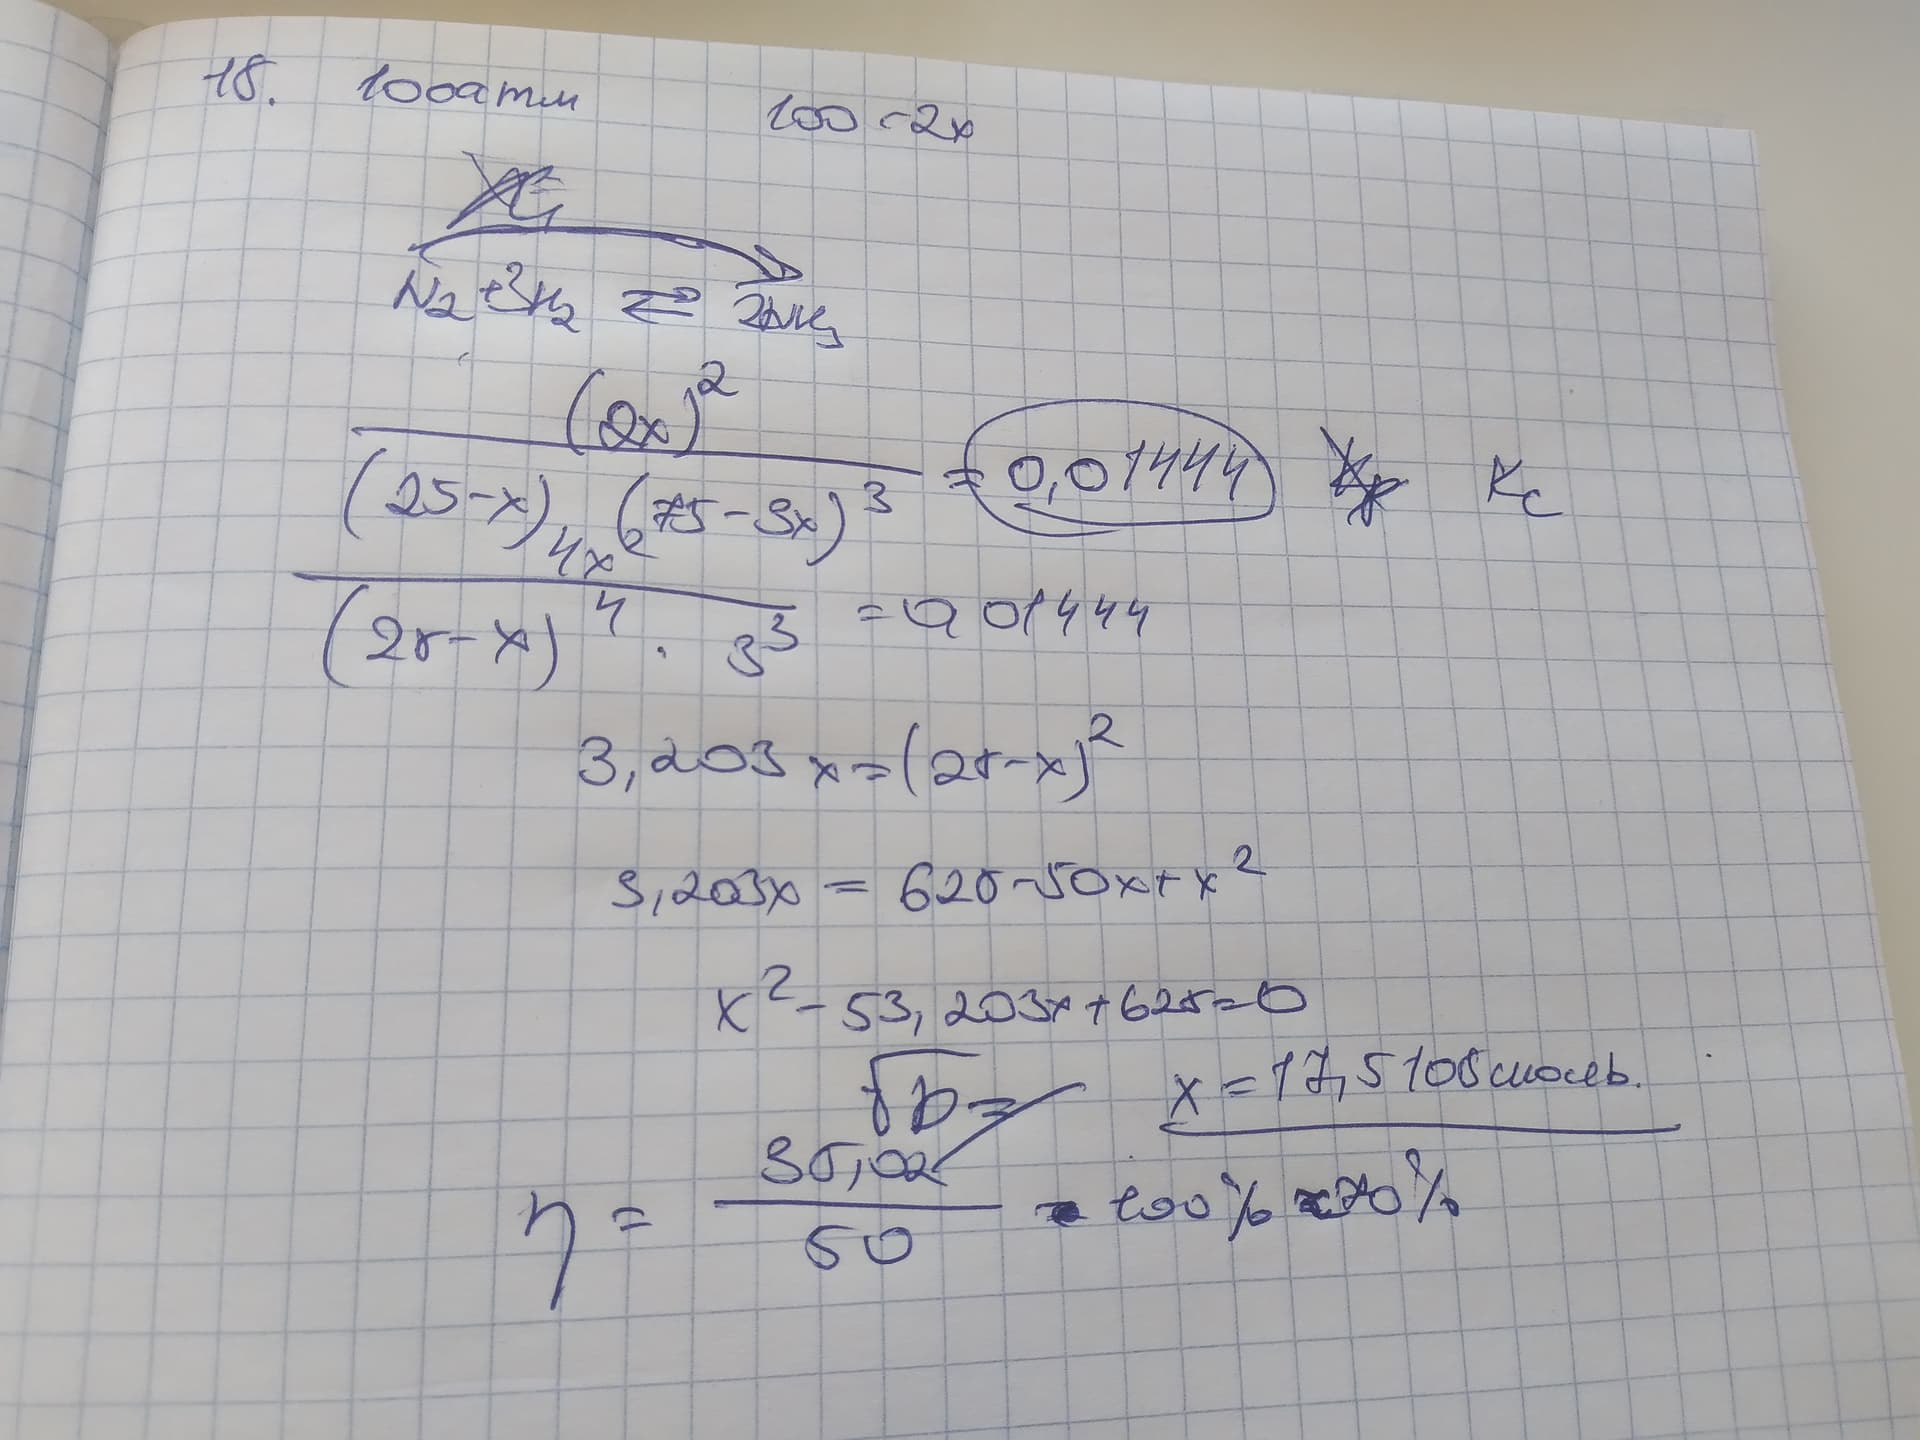 18. 100 атм 100-2x
N2 + 3H2 ⇄ 2NH3
(2x)^2
(25-x) (75-3x)^3 = 0,01444 Kc
4x^2
(25-x)^4 · 3^3 = 0,01444
3,203x = (25-x)^2
3,203x = 625-50x+x^2
x^2-53,203x+625=0
√D= x=17,5108 моль.
η = 35,02 / 50 · 100% ≈ 70%